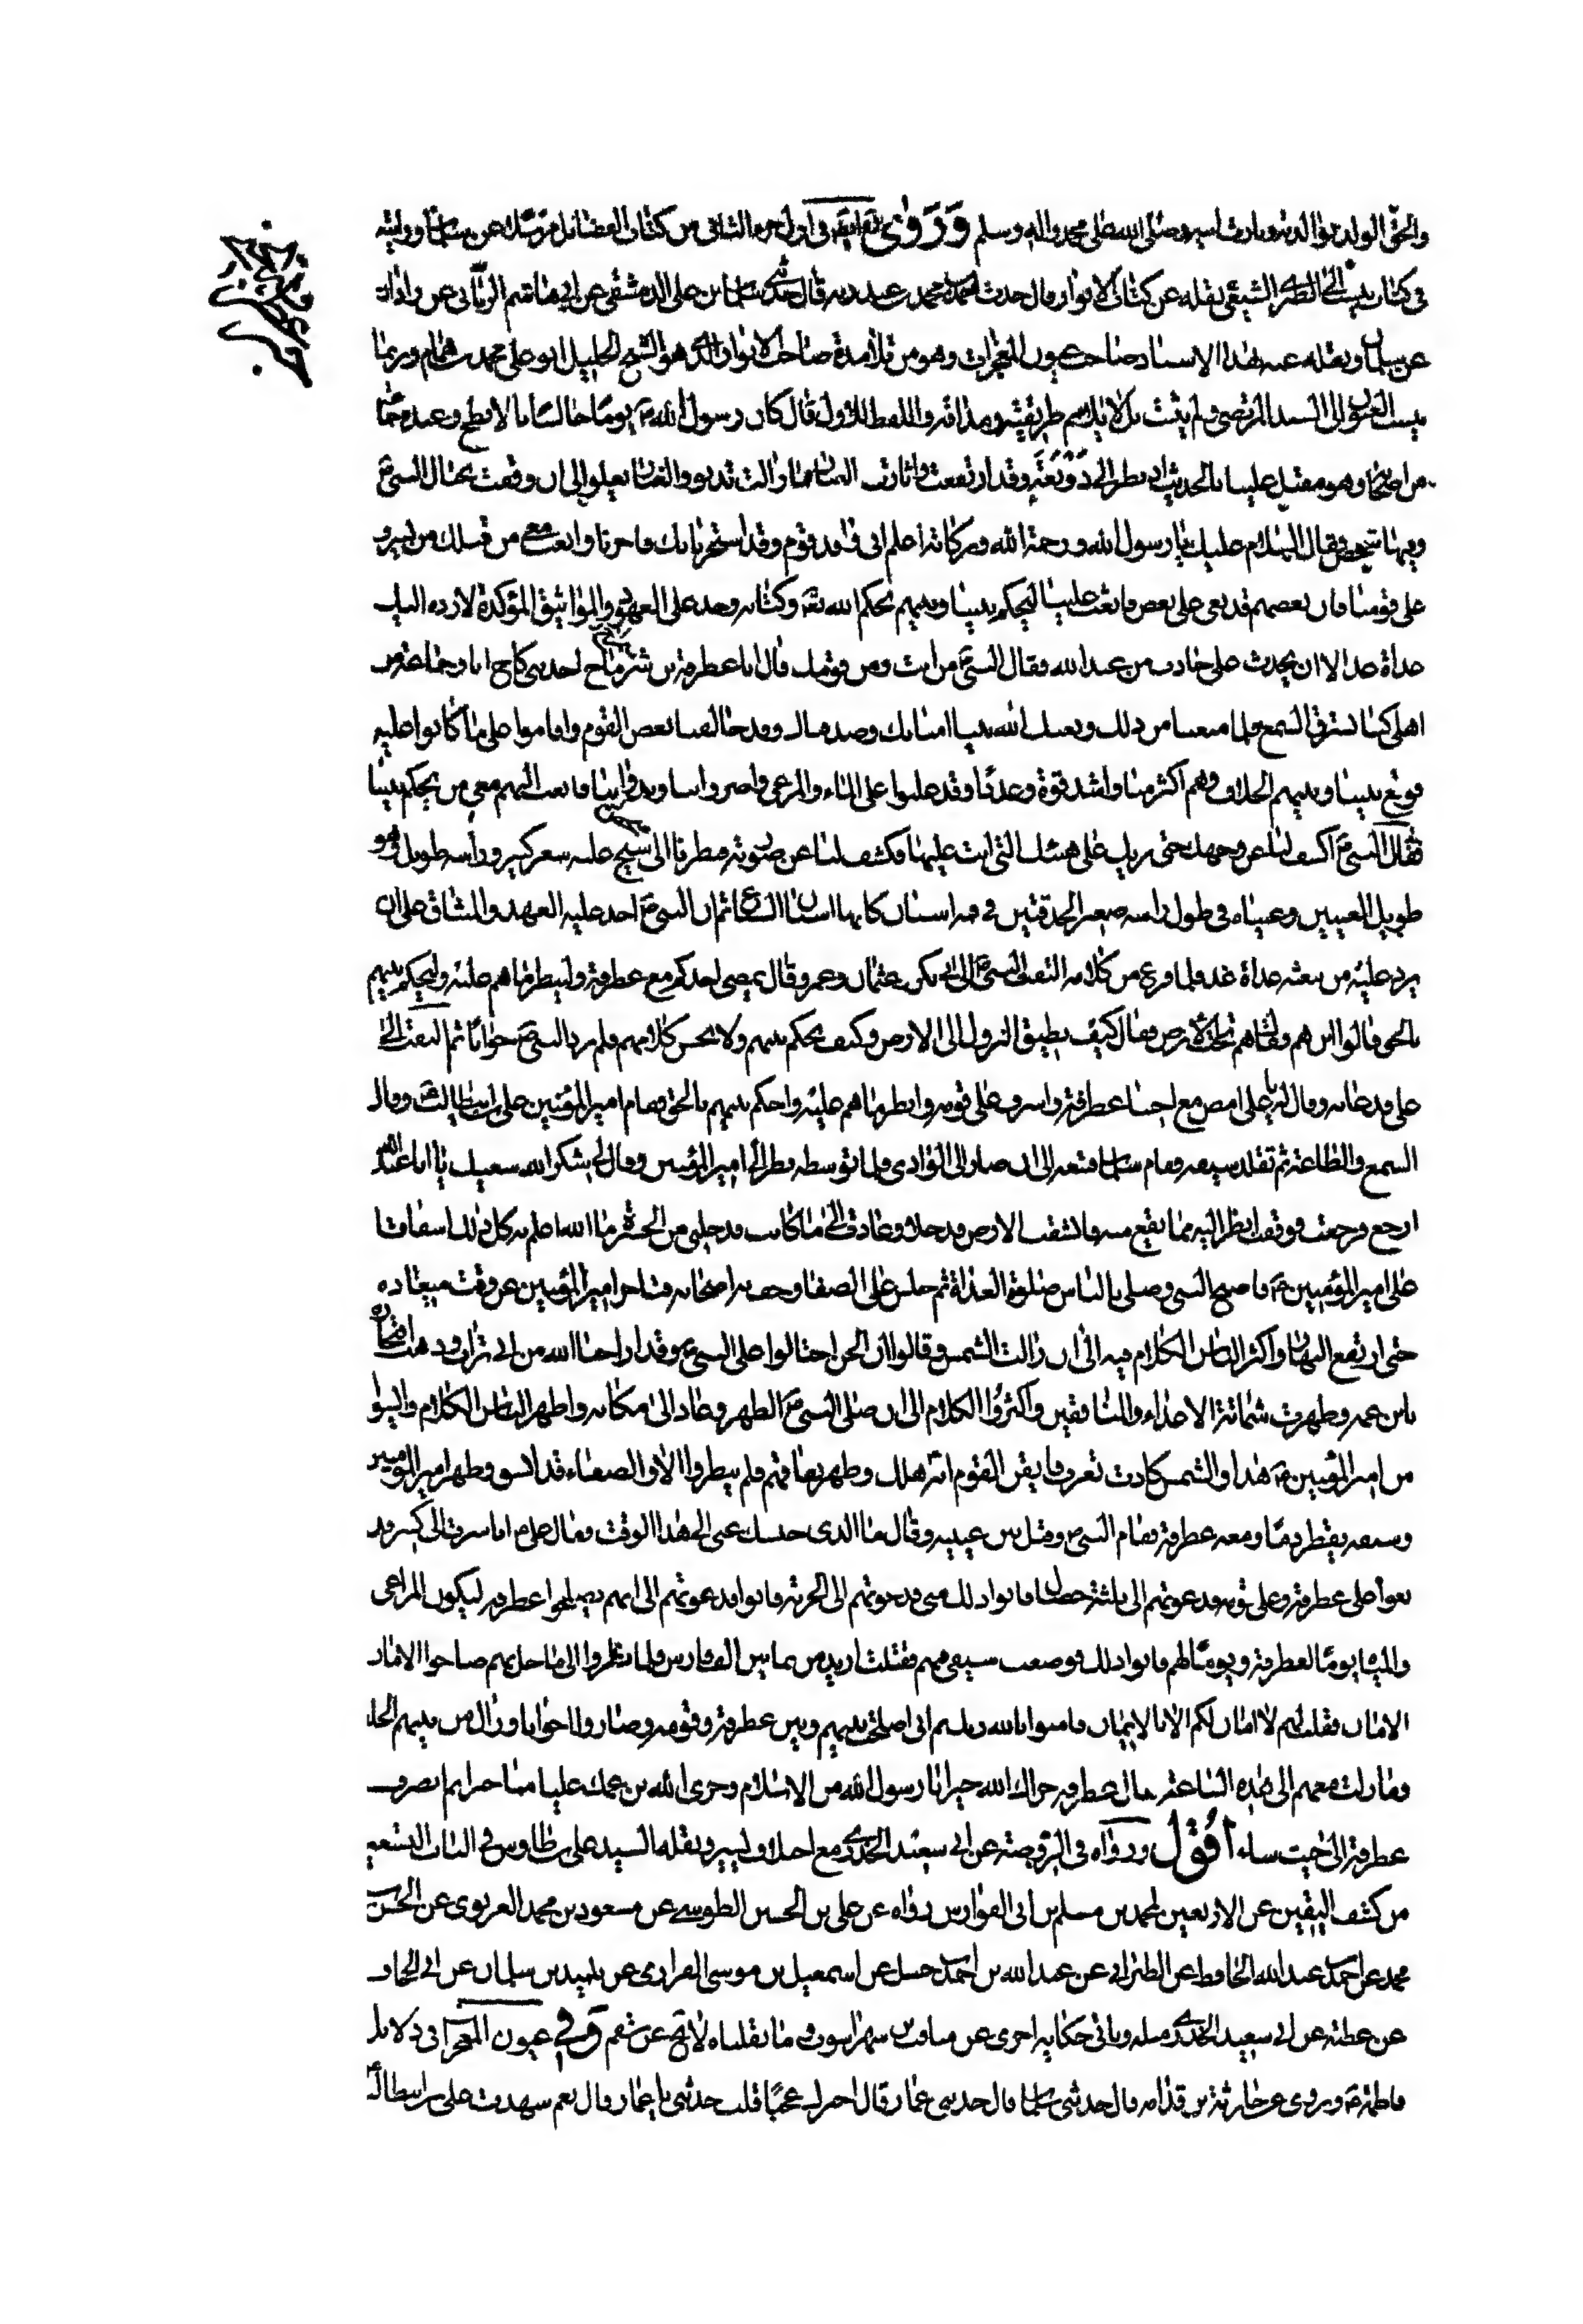 والحق الولد بوالديه وبارك اسيه وصلى الله على محمد واله وسلم وروى في اول جزء الثاني من كتاب الفضائل مرسلا عن سلمان ورايته
في كتاب ينسب الى الطبري الشيعي نقله عن كتاب الانوار وقال حدث احمد بن محمد بن عبد ربه قال حدثني سلمان بن علي الدمشقي عن ابي هاشم الرماني عن زاذان
عن سلمان ونقله عنه بهذا الاسناد صاحب عيون المعجزات وهو من تلامذة صاحب الانوار الذي هو الشيخ الجليل ابو علي محمد بن همام وربما
ينسب العيون الى السيد المرتضى ولم يثبت بل لا يلايم طريقته ومذاقه واللفظ للاول قال كان رسول الله ص يوما جالسا بالابطح وعنده جماعة
من اصحابه وهو مقبل علينا بالحديث اذ نظر الى زوبعة وقد ارتفعت واثارت الغبار وما زالت تدنو والغبار يعلو الى ان وقفت بحذاء النبي ص
وفيها شخص فقال السلام عليك يا رسول الله ورحمة الله وبركاته اعلم اني وافد قوم وقد استجرنا بك فاجرنا وابعث معي من قبلك من يشرف
على قومنا فان بعضهم قد بغى على بعض فابعث الينا ليحكم بيننا وبينهم بحكم الله تع وكتابه وخذ علي العهود والمواثيق المؤكدة لارده اليك
غداة غد الا ان يحدث علي حادث من عند الله فقال النبي ص من انت ومن قومك قال انا عطرفة بن شمراخ احد بني كاخ انا وجماعة من
اهلي كنا نسترق السمع فلما منعنا من ذلك وبعثك الله نبيا امنا بك وصدقناك وقد خالفنا بعض القوم واقاموا على ما كانوا عليه
فوقع بيننا وبينهم الخلاف وهم اكثر منا واشد قوة وعددا وقد غلبوا على الماء والمرعى واضروا بنا وبدوابنا فابعث اليهم معي من يحكم بيننا
فقال النبي ص اكشف لنا عن وجهك حتى نراك على هيئتك التي انت عليها فكشف لنا عن صورته فنظرنا الى شيخ عليه شعر كثير وراسه طويل وهو
طويل العينين وعيناه في طول راسه صغير الحدقتين في فيه اسنان كانها اسنان السباع ثم ان النبي ص اخذ عليه العهد والميثاق على ان
يرد عليه من يبعثه غداة غد فلما فرغ من كلامه التفت النبي ص الى ابي بكر وعثمان وعمر وقال يمضي احدكم مع عطرفة ولينظر ما هم عليه وليحكم بينهم
بالحق فقالوا اين هم وقال هم تحت الارض فقال كيف نطيق النزول الى الارض وكيف نحكم بينهم ولا نحسن كلامهم فلم يرد النبي ص جوابا ثم التفت الى
علي بن ابي طالب وقال له يا علي امض مع اخينا عطرفة واشرف على قومه وانظر ما هم عليه واحكم بينهم بالحق فقام امير المؤمنين علي بن ابي طالب ع وقال
السمع والطاعة ثم تقلد سيفه وقام سلمان فتبعه الى ان صار الى الوادي فلما توسطه نظر الي امير المؤمنين وقال لي شكر الله سعيك يا ابا عبد الله
ارجع فرجعت فوقفت انظر اليه مما يقع منه فانشقت الارض فدخلا وعادت الى ما كانت فدخلني من الحسرة ما الله اعلم به كل ذلك اشفاقا
على امير المؤمنين ع فاصبح النبي وصلى بالناس صلوة الغداة ثم جلس على الصفا وحف به اصحابه فتاخر امير المؤمنين عن وقت ميعاده
حتى ارتفع النهار واكثر الناس الكلام فيه الى ان زالت الشمس وقالوا ان الجن احتالوا على النبي ص وقد اراحنا الله من ابي تراب وذهب افتخاره
بابن عمه وظهرت شماتة الاعداء والمنافقين واكثروا الكلام الى ان صلى النبي ص الظهر وعاد الى مكانه واظهر الناس الكلام وايسوا
من امير المؤمنين ع هذا والشمس كادت تغرب وايقن القوم انه هلك وظهر نفاقهم فلم ينظروا الا والصفاء قد انشق وظهر امير المؤمنين
وسيفه يقطر دما ومعه عطرفة فقام النبي ص وقبل بين عينيه وقال ما الذي حبسك عني الى هذا الوقت فقال علي ع انا سرت الى كثير قد
بغوا على عطرفة وعلى قومه فدعوتهم الى ثلثة خصال فابوا ذلك مني فدعوتهم الى الجزية فابوا فدعوتهم الى انهم يصلحوا عطرفة ليكون المراعي
والمياه يوما لعطرفة ويوما لهم فابوا ذلك فوضعت سيفي فيهم فقتلت ازيد من ثمانين الف فارس فلما نظروا الى ما حل بهم صاحوا الامان
الامان فقلت لهم لا امان لكم الا بالايمان فامنوا بالله وبك ثم اني اصلحت بينهم وبين عطرفة وقومه وصاروا اخوانا وزال من بينهم الخلاف
وما زلت معهم الى هذه الساعة فقال عطرفة جزاك الله خيرا يا رسول الله من الاسلام وجزى الله بن عمك عليا منا خيرا ثم انصرف
عطرفة الى حيث شاء اقول ورواه في البرقيصة عن ابي سعيد الخدري مع اختلاف يسير ونقله السيد علي بن طاوس في الباب التسعين
من كشف اليقين عن الاربعين لمحمد بن مسلم بن ابي الفوارس رواه عن علي بن الحسين الطوسي عن مسعود بن محمد الغزنوي عن الحسن
محمد عن احمد بن عبد الله الحافظ عن الطبراني عن عبد الله بن احمد بن حنبل عن اسمعيل بن موسى الفزاري عن تليد بن سليمان عن ابي الجحاف
عن عطية عن ابي سعيد الخدري مثله وياتي حكاية اخرى عن مناقب بن شهراشوب ما نقلناه لا يخ عن وفي عيون المعجزات في دلايل
فاطمة ع وروى عن حارثة بن قدامة قال حدثني سلمان قال حدثني عمار وقال اخبرك عجبا قلت حدثني يا عمار قال نعم شهدت علي بن ابي طالب